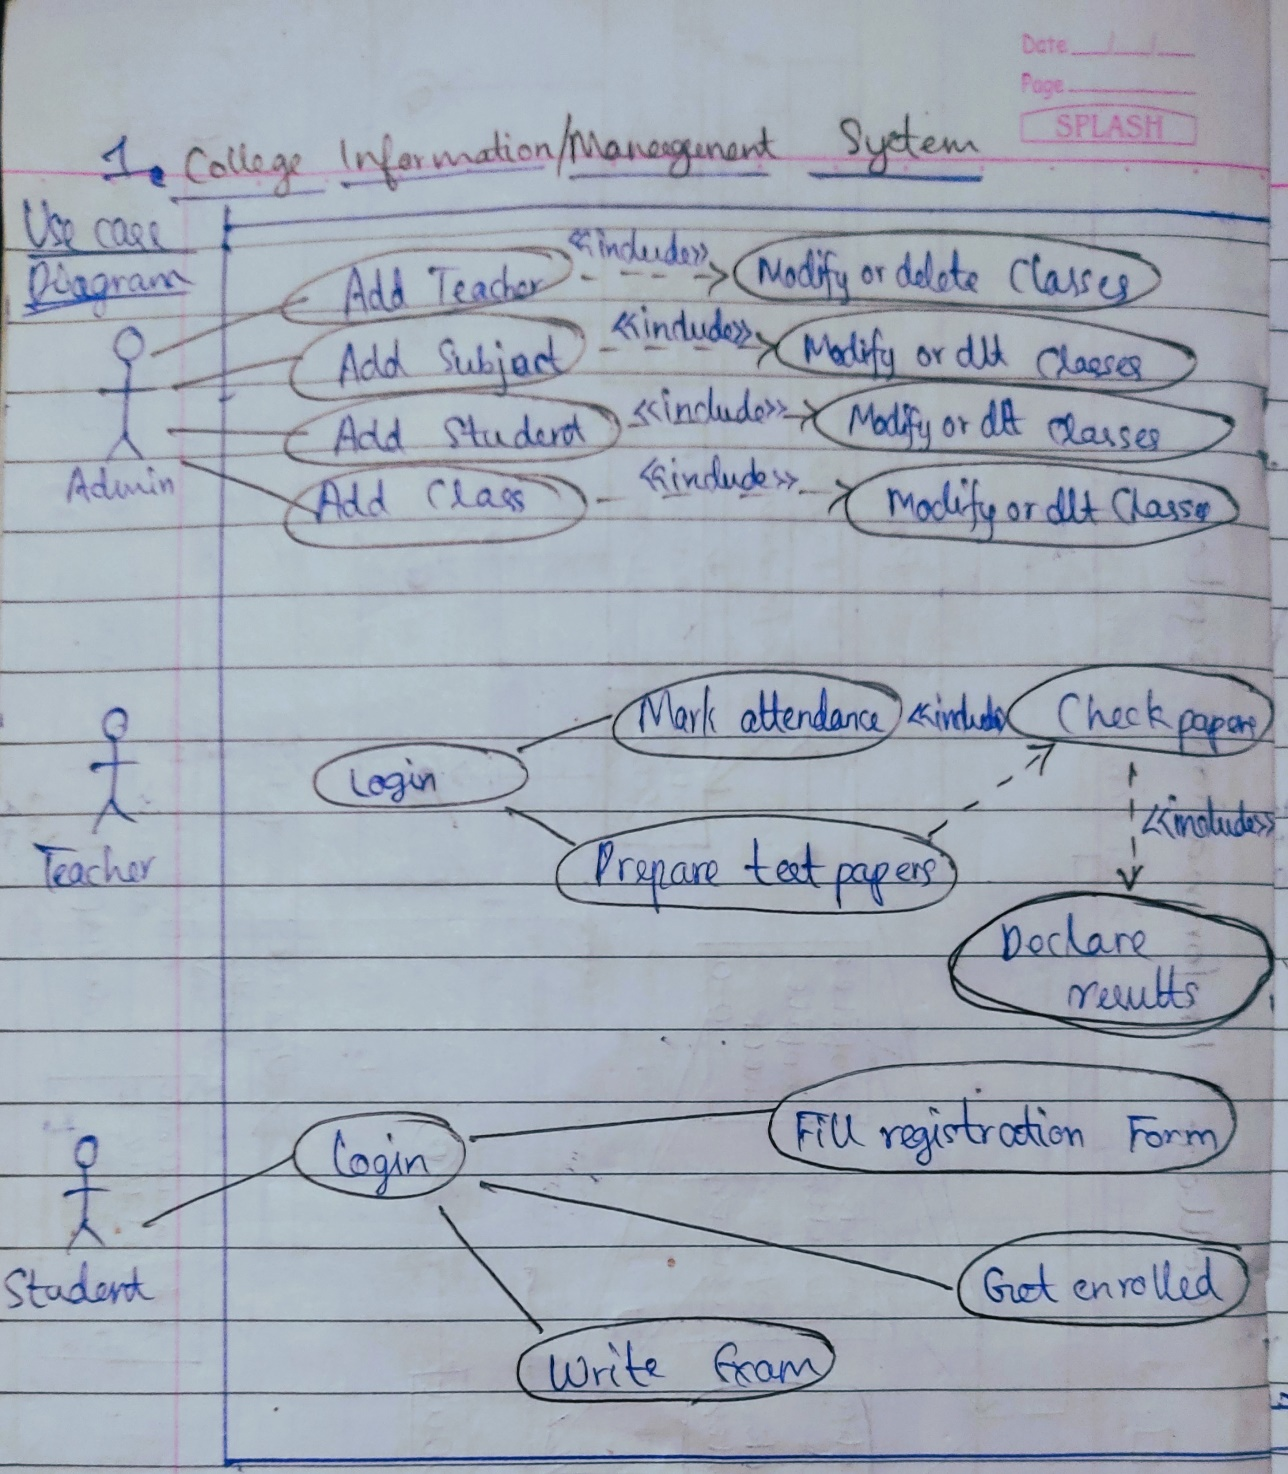 Date
Page
SPLASH
1. College Information/Management System
Use case
Diagram
Add Teacher <<include>> Modify or delete Classes
Add Subject <<include>> Modify or dlt Classes
Add Student <<include>> Modify or dlt Classes
Add Class <<include>> Modify or dlt Classe
Admin
Mark attendance <<include Check papers
Login
<<include>>
Prepare test papers
Teacher
Declare
results
Fill registration Form
Login
Get enrolled
Student
Write Exam